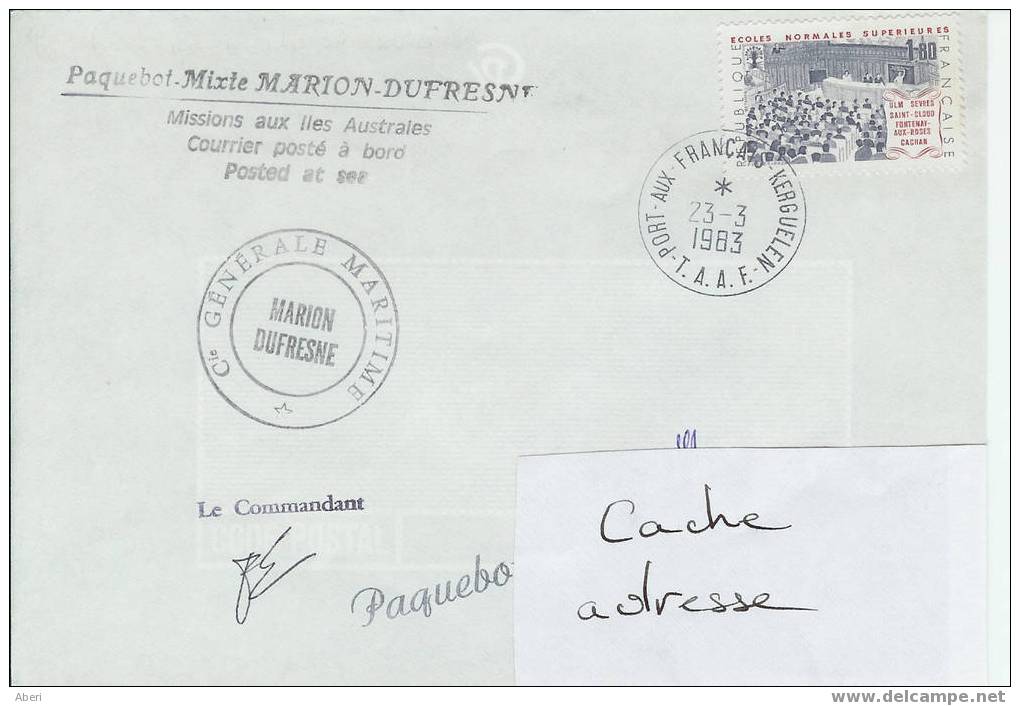 Paquebot-Mixte MARION-DUFRESNE
Missions aux Iles Australes
Courrier posté à bord
Posted at sea
ECOLES NORMALES SUPERIEURES
1,80
REPUBLIQUE
FRANÇAISE
ULM SEVRES
SAINT-CLOUD
FONTENAY-
AUX-ROSES
CACHAN
PORT-AUX-FRANÇAIS-KERGUELEN
*
23-3
1983
T.A.A.F.
Cie GÉNÉRALE MARITIME
MARION
DUFRESNE
Le Commandant
Paquebo
Cache
adresse
Aberi
www.delcampe.net